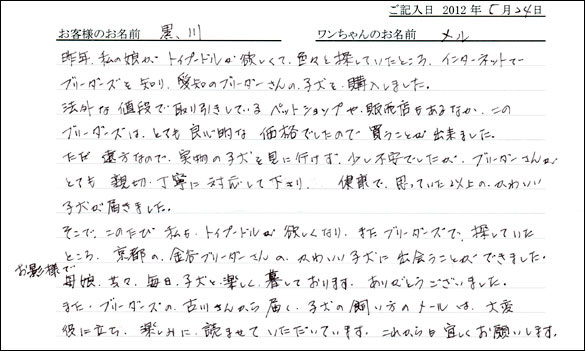 ご記入日 2012 年 5月24日
お客様のお名前 黒川 ワンちゃんのお名前 メル
昨年、私の娘が、トイプードルが欲しくて、色々と探していたところ、インターネットで
ブリーダーズを知り、愛知のブリーダーさんの子犬を購入しました。
法外な値段で取り引きしているペットショップや、販売店もあるなか、この
ブリーダーズは、とても良心的な価格でしたので買うことが出来ました。
ただ遠方なので、実物の子犬を見に行けず、少し不安でしたが、ブリーダーさんが
とても親切、丁寧に対応して下さり、健康で、思っていた以上の、かわいい
子犬が届きました。
そこで、このたび私も、トイプードルが欲しくなり、またブリーダーズで、探していた
ところ、京都の、金谷ブリーダーさんの、かわいい子犬に出会うことができました。
お影様で
母娘、共々、毎日、子犬と楽しく暮しております。ありがとうございました。
また、ブリーダーズの、古川さんから届く、子犬の飼い方のメールは、大変
役に立ち、楽しみに、読ませていただいています。これからも宜しくお願いします。